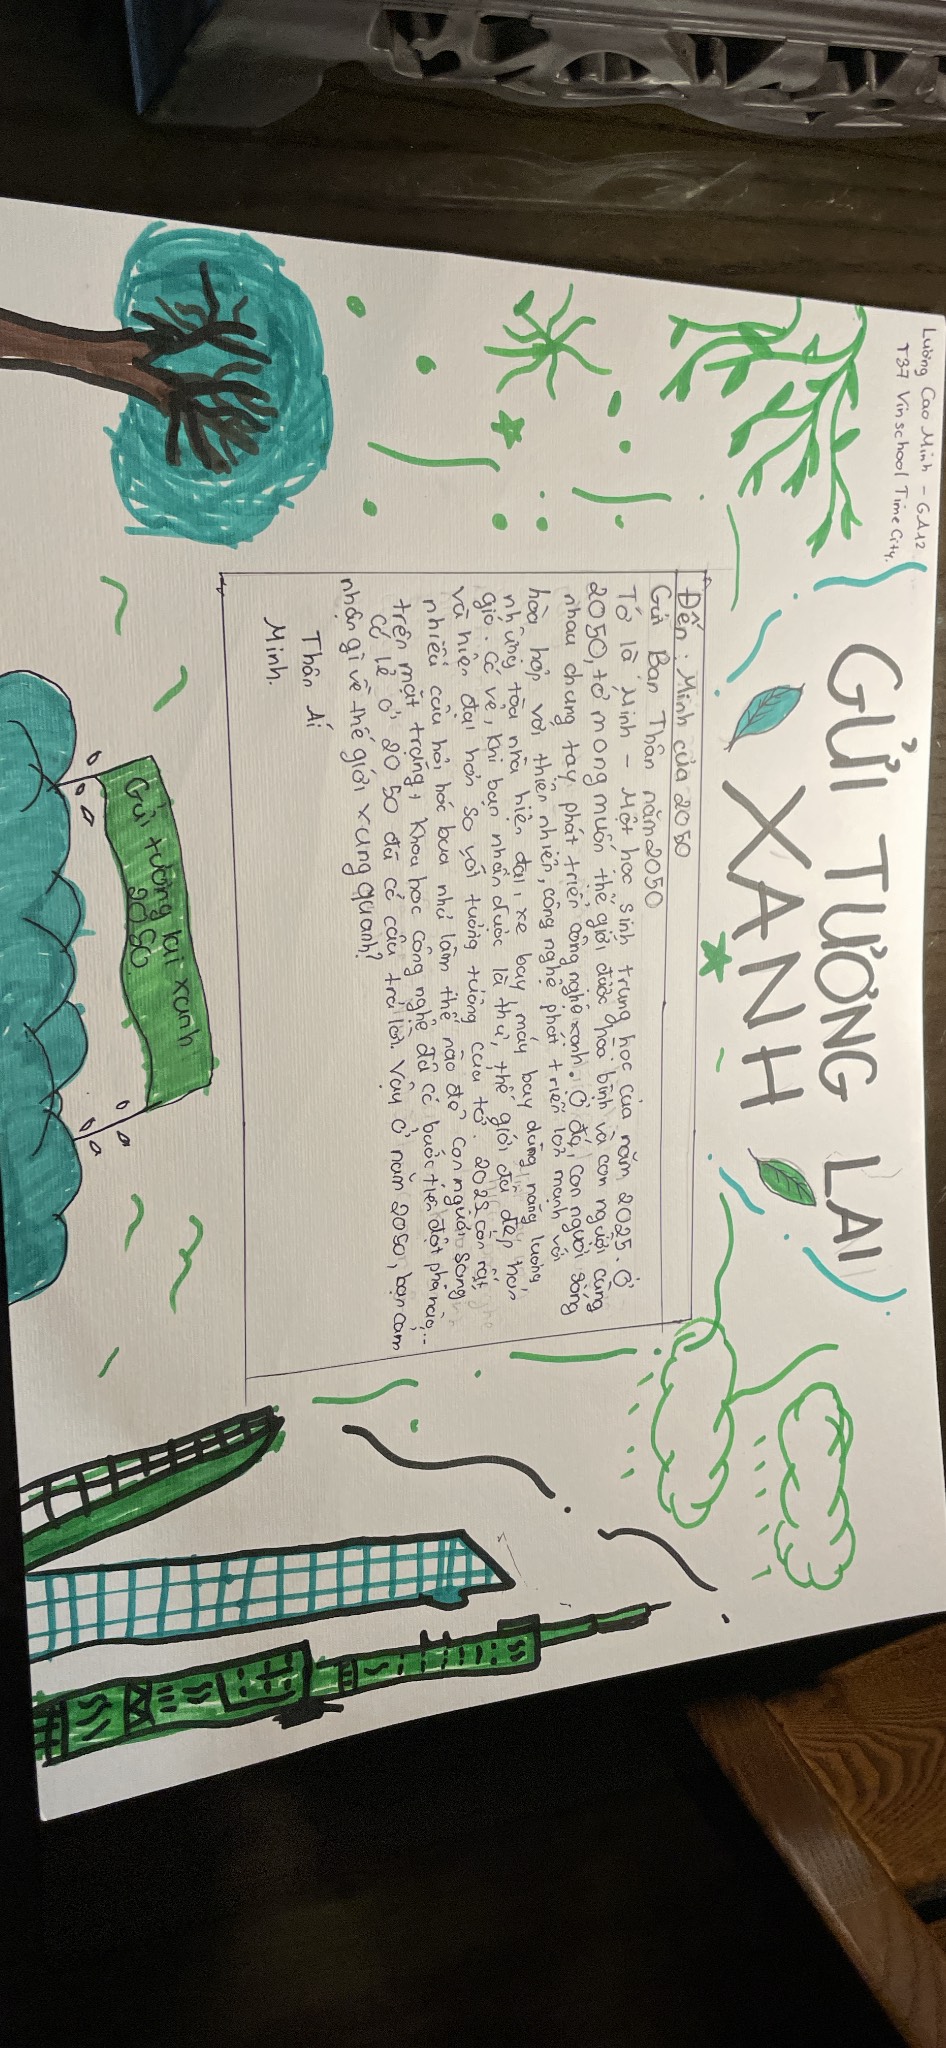 Lương Cao Minh - 6A12
T37 Vinschool TimeCity.
GỬI TƯƠNG LAI
XANH
Đến: Minh của 2050
Gửi Bạn Thân năm 2050
Tớ là Minh - Một học sinh trung học của năm 2025. Ở
2050, tớ mong muốn thế giới được hoà bình và con người cùng
nhau chung tay phát triển công nghệ xanh. Ở đó, con người sống
hòa hợp với thiên nhiên, công nghệ phát triển lớn mạnh với
những tòa nhà hiện đại, xe bay máy bay dùng năng lượng
gió. Có vẻ, khi bạn nhận được lá thư, thế giới đã đẹp hơn
và hiện đại hơn so với tưởng tượng của tớ. 2025 còn rất
nhiều câu hỏi hóc búa như làm thế nào để con người sống
trên mặt trăng, khoa học công nghệ đã có bước tiến đột phá nào,...
Có lẽ ở 2050 đã có câu trả lời. Vậy ở năm 2050, bạn cảm
nhận gì về thế giới xung quanh?
Thân Ái
Minh.
Gửi tương lai xanh
2050